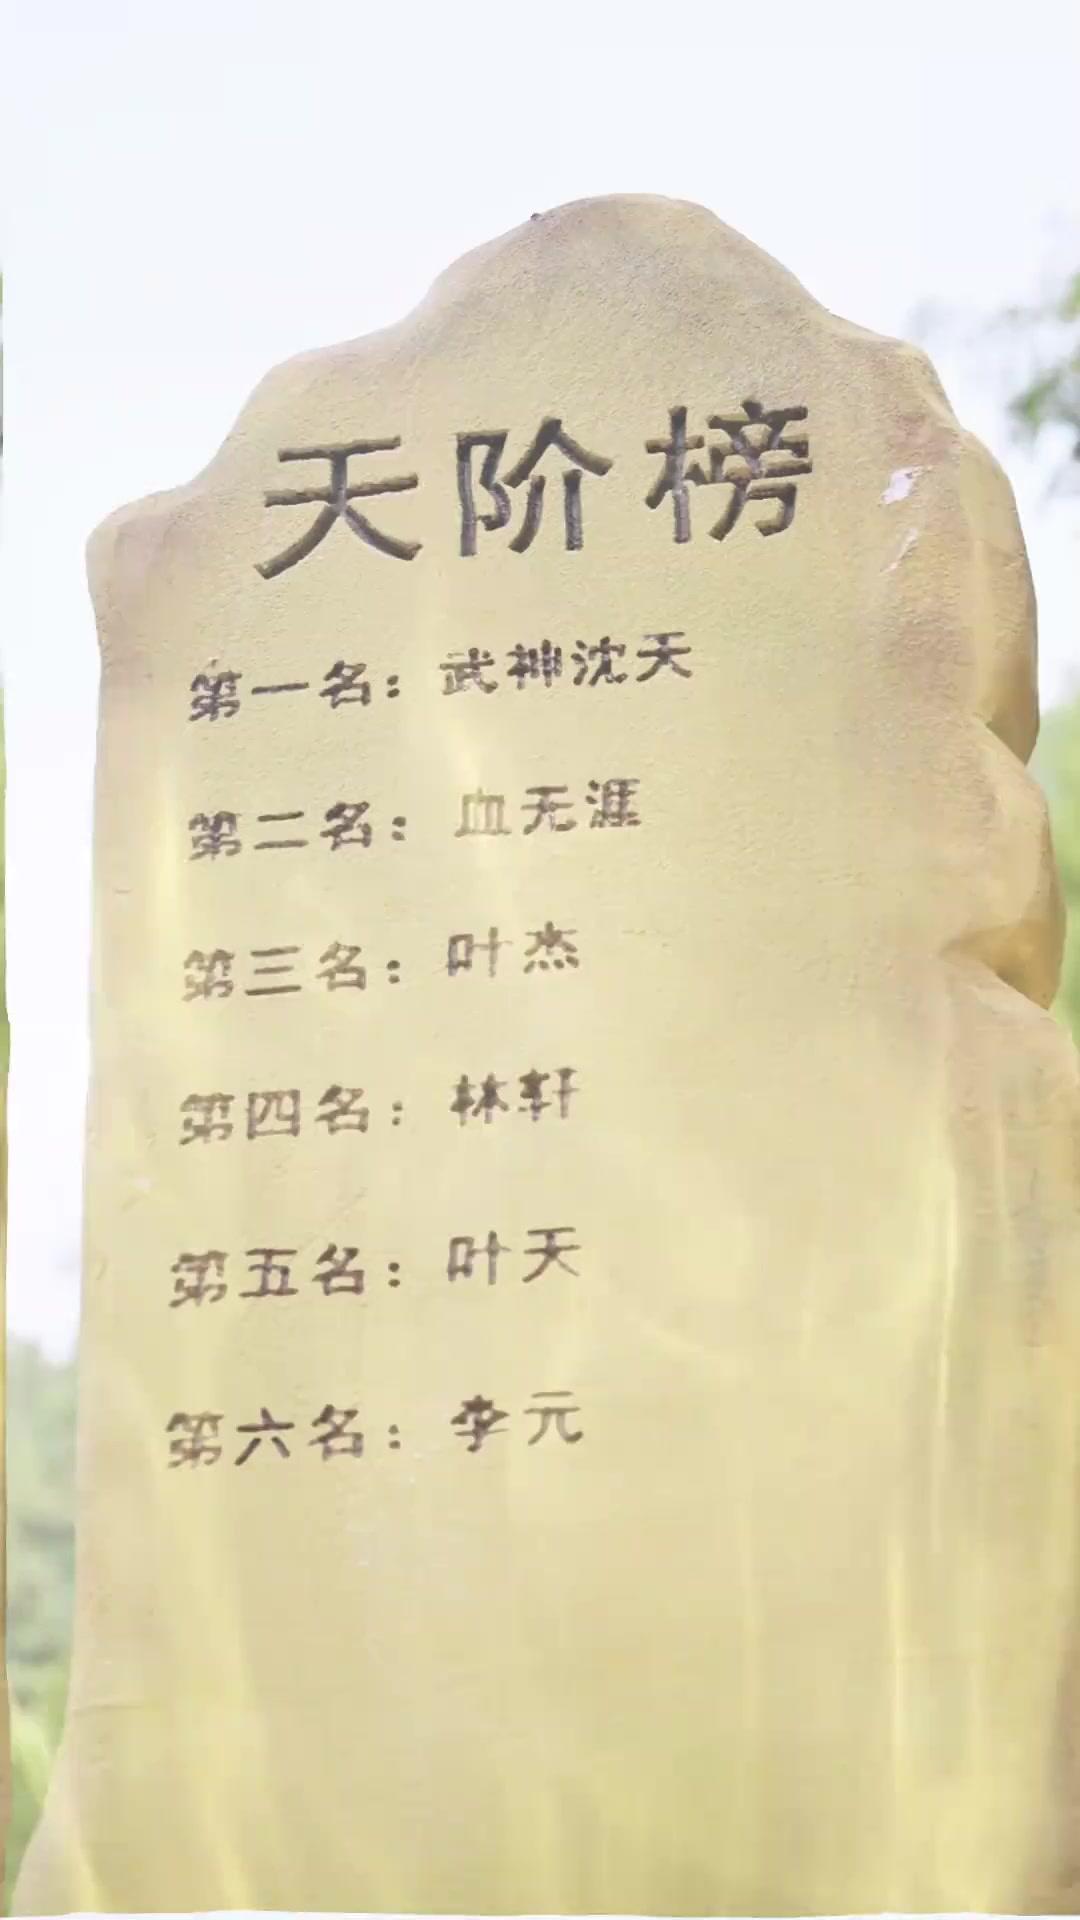 天阶榜
第一名：武神沈天
第二名：血无涯
第三名：叶杰
第四名：林轩
第五名：叶天
第六名：李元